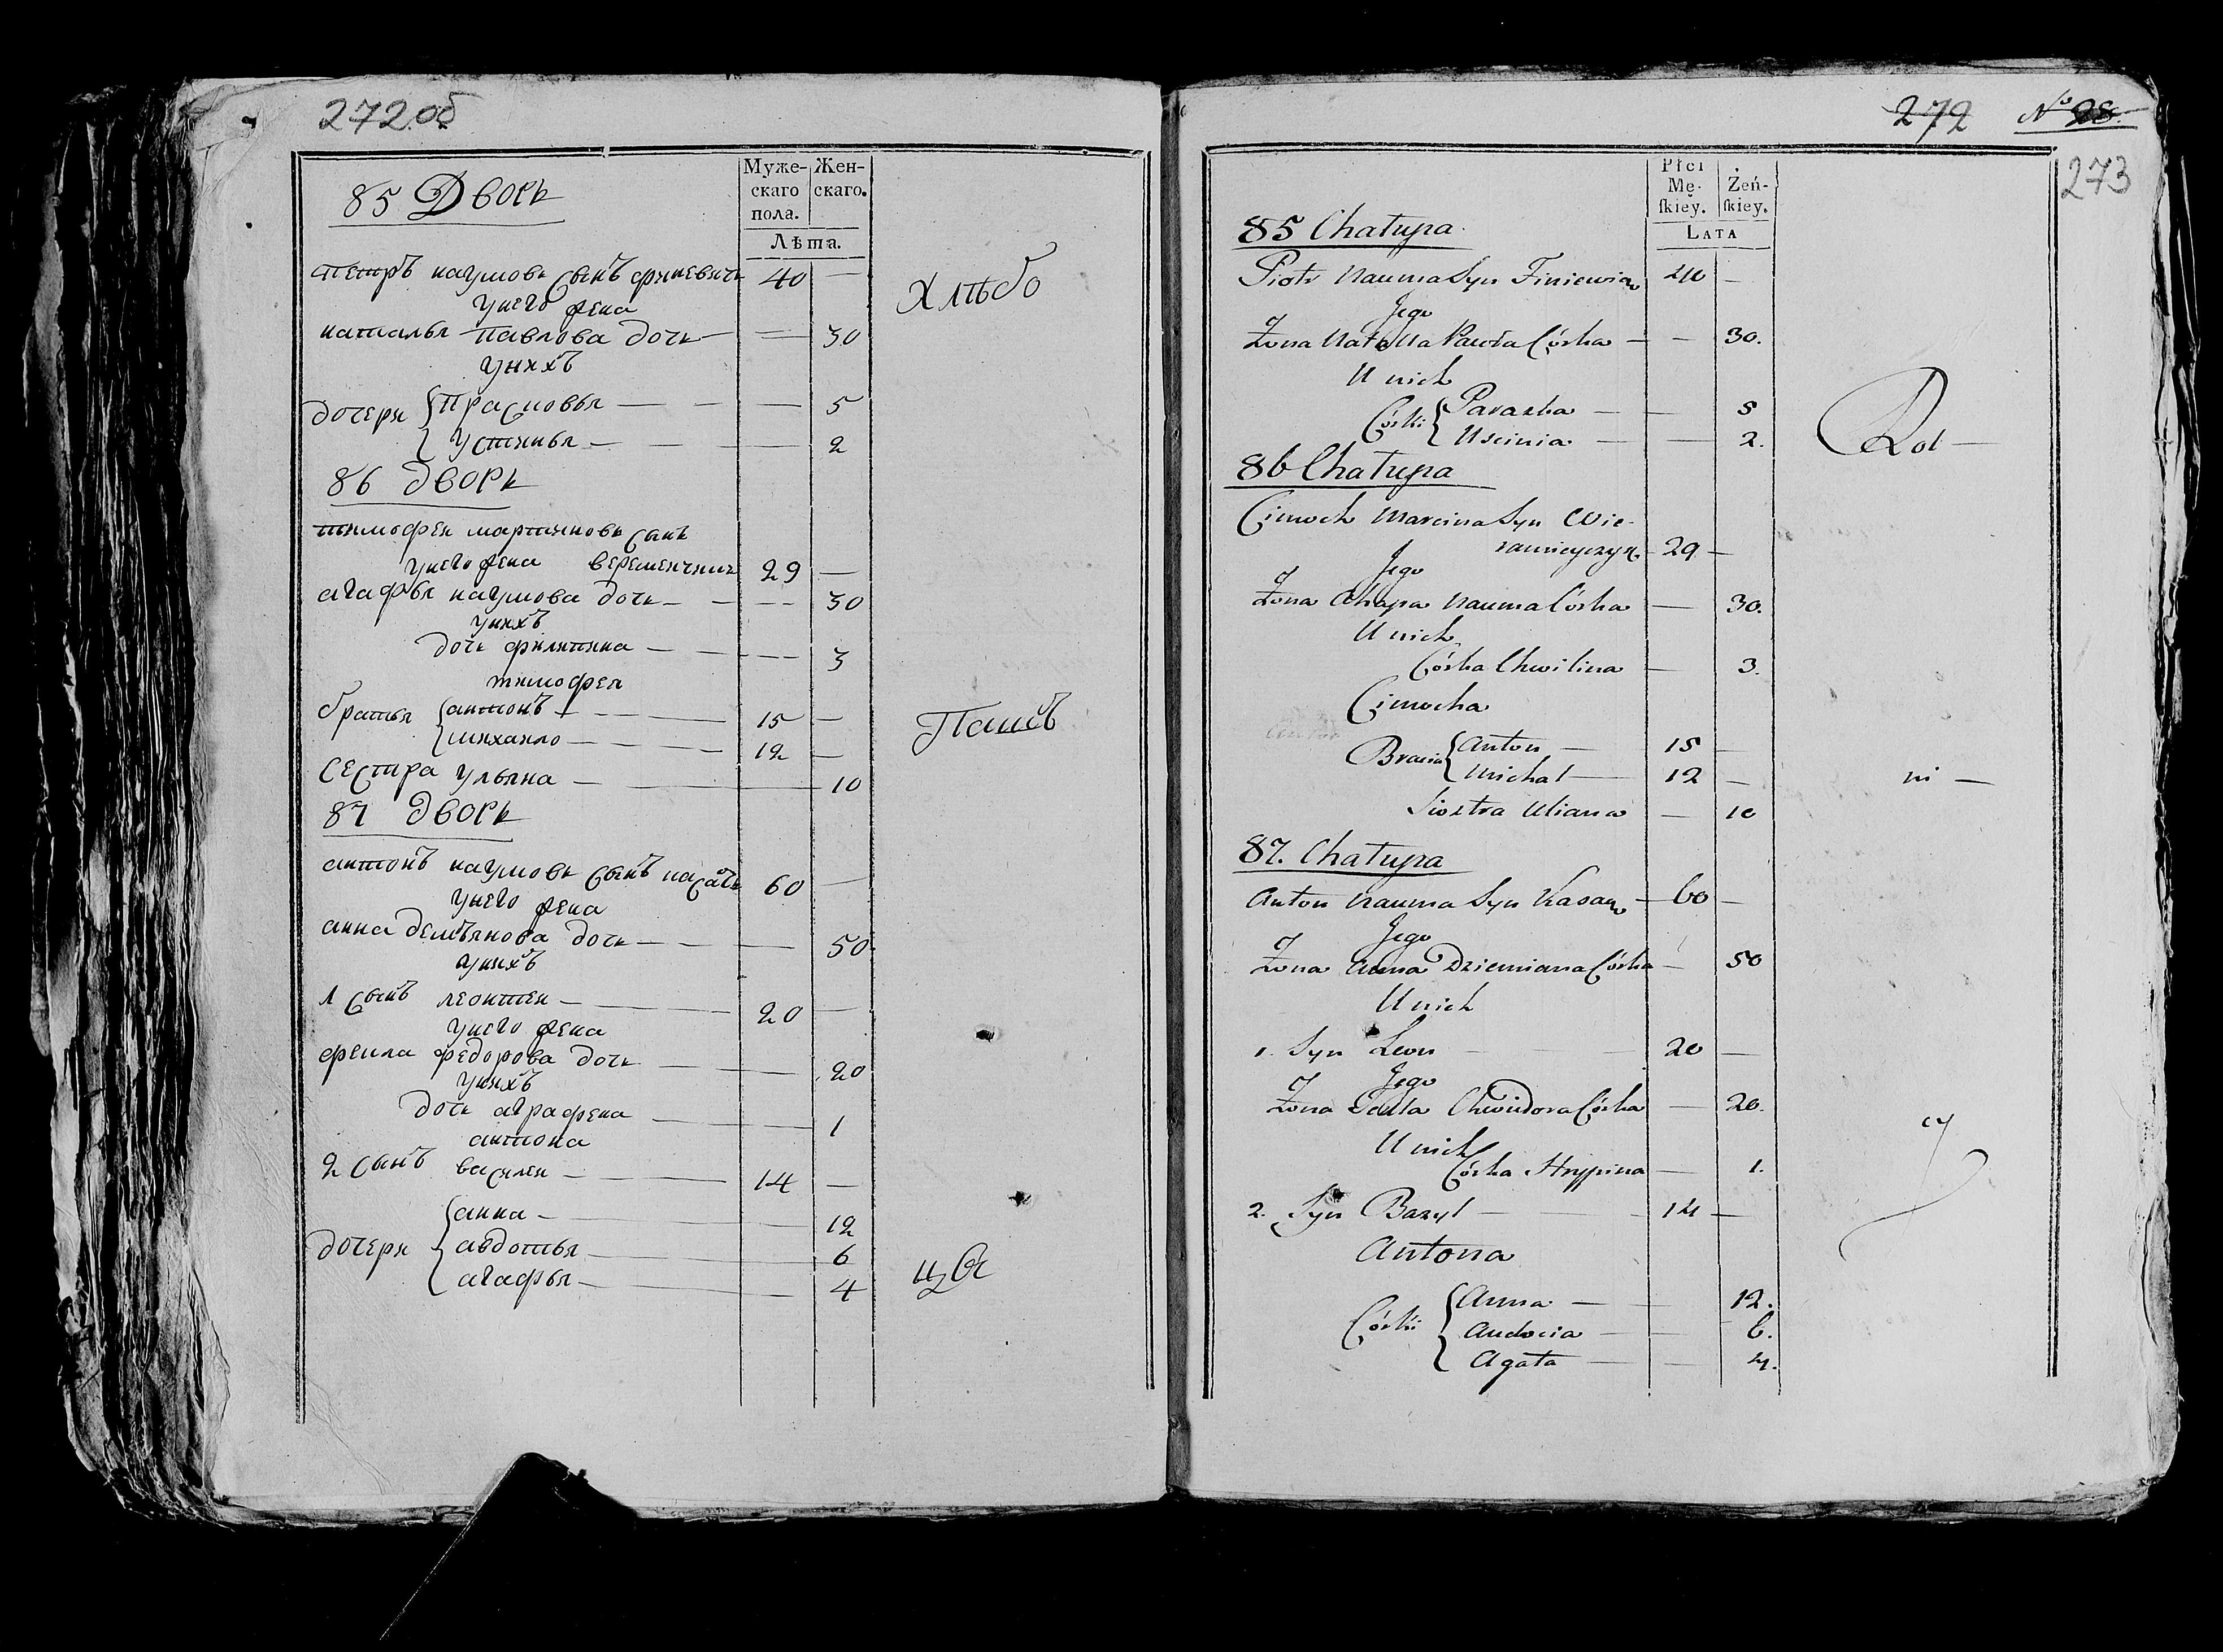 272 об
85 Дворъ
Муже-
скаго
пола.
Жен-
скаго.
Лѣта.
Петръ наумовъ сынъ финевичъ 40 —
Хлѣбо
у него жена
наталья павлова дочь — — 30
у нихъ
дочери { Прасковья — — — 5
устинья — — — 2
86 дворъ
тимофей мартиновъ сынъ
у него жена веременчикъ 29 —
агафья наумова дочь — — — 30
у нихъ
дочь филипина — — — 3
тимофея
братья { антонъ — — — 15 —
михайло — — — 12 —
Пашеъ
сестра ульяна — — 10
87 дворъ
антонъ наумовъ сынъ касачъ 60 —
у него жена
анна демьянова дочь — — — 50
у нихъ
1 сынъ леонтей — — 20 —
у него жена
феила федорова дочь — — 20
у нихъ
дочь аграфена — — 1
антона
2 сынъ василей — — 14 —
дочери { анна — — — 12
авдотья — — 6
агафья — — 4
цъ
272 No 28.
273
Płci
Mę-
ſkiey.
Żeń-
ſkiey.
LATA
85 Chałupa.
Piotr Nauma Syn Finiewicz 40 —
Jego
Żona Natalla Pawła Córka — — 30.
U nich
Córki { Paraska — — 5
Uscinia — — 2.
Rol —
86 Chałupa
Cimoch Marcina Syn Wie-
ramieyczyk — 29 —
Jego
Żona Ahapa Nauma Córka — 30.
U nich
Córka Chwilina — 3.
Cimocha
Bracia { Anton — 15 —
Michał — 12 —
ni —
Siostra Uliana — 10
87. Chałupa
Anton Nauma Syn Kasacz — 60 —
Jego
Żona Anna Dziemiana Córka — 50
U nich
1. Syn Leon — — 20 —
Jego
Żona Tekla Chwiedora Córka — 20.
U nich
cy
Córka Hrypina — 1.
2. Syn Bazyl — — 14 —
Antona
Córki { Anna — — 12.
Audocia — — 6.
Agata — — 4.